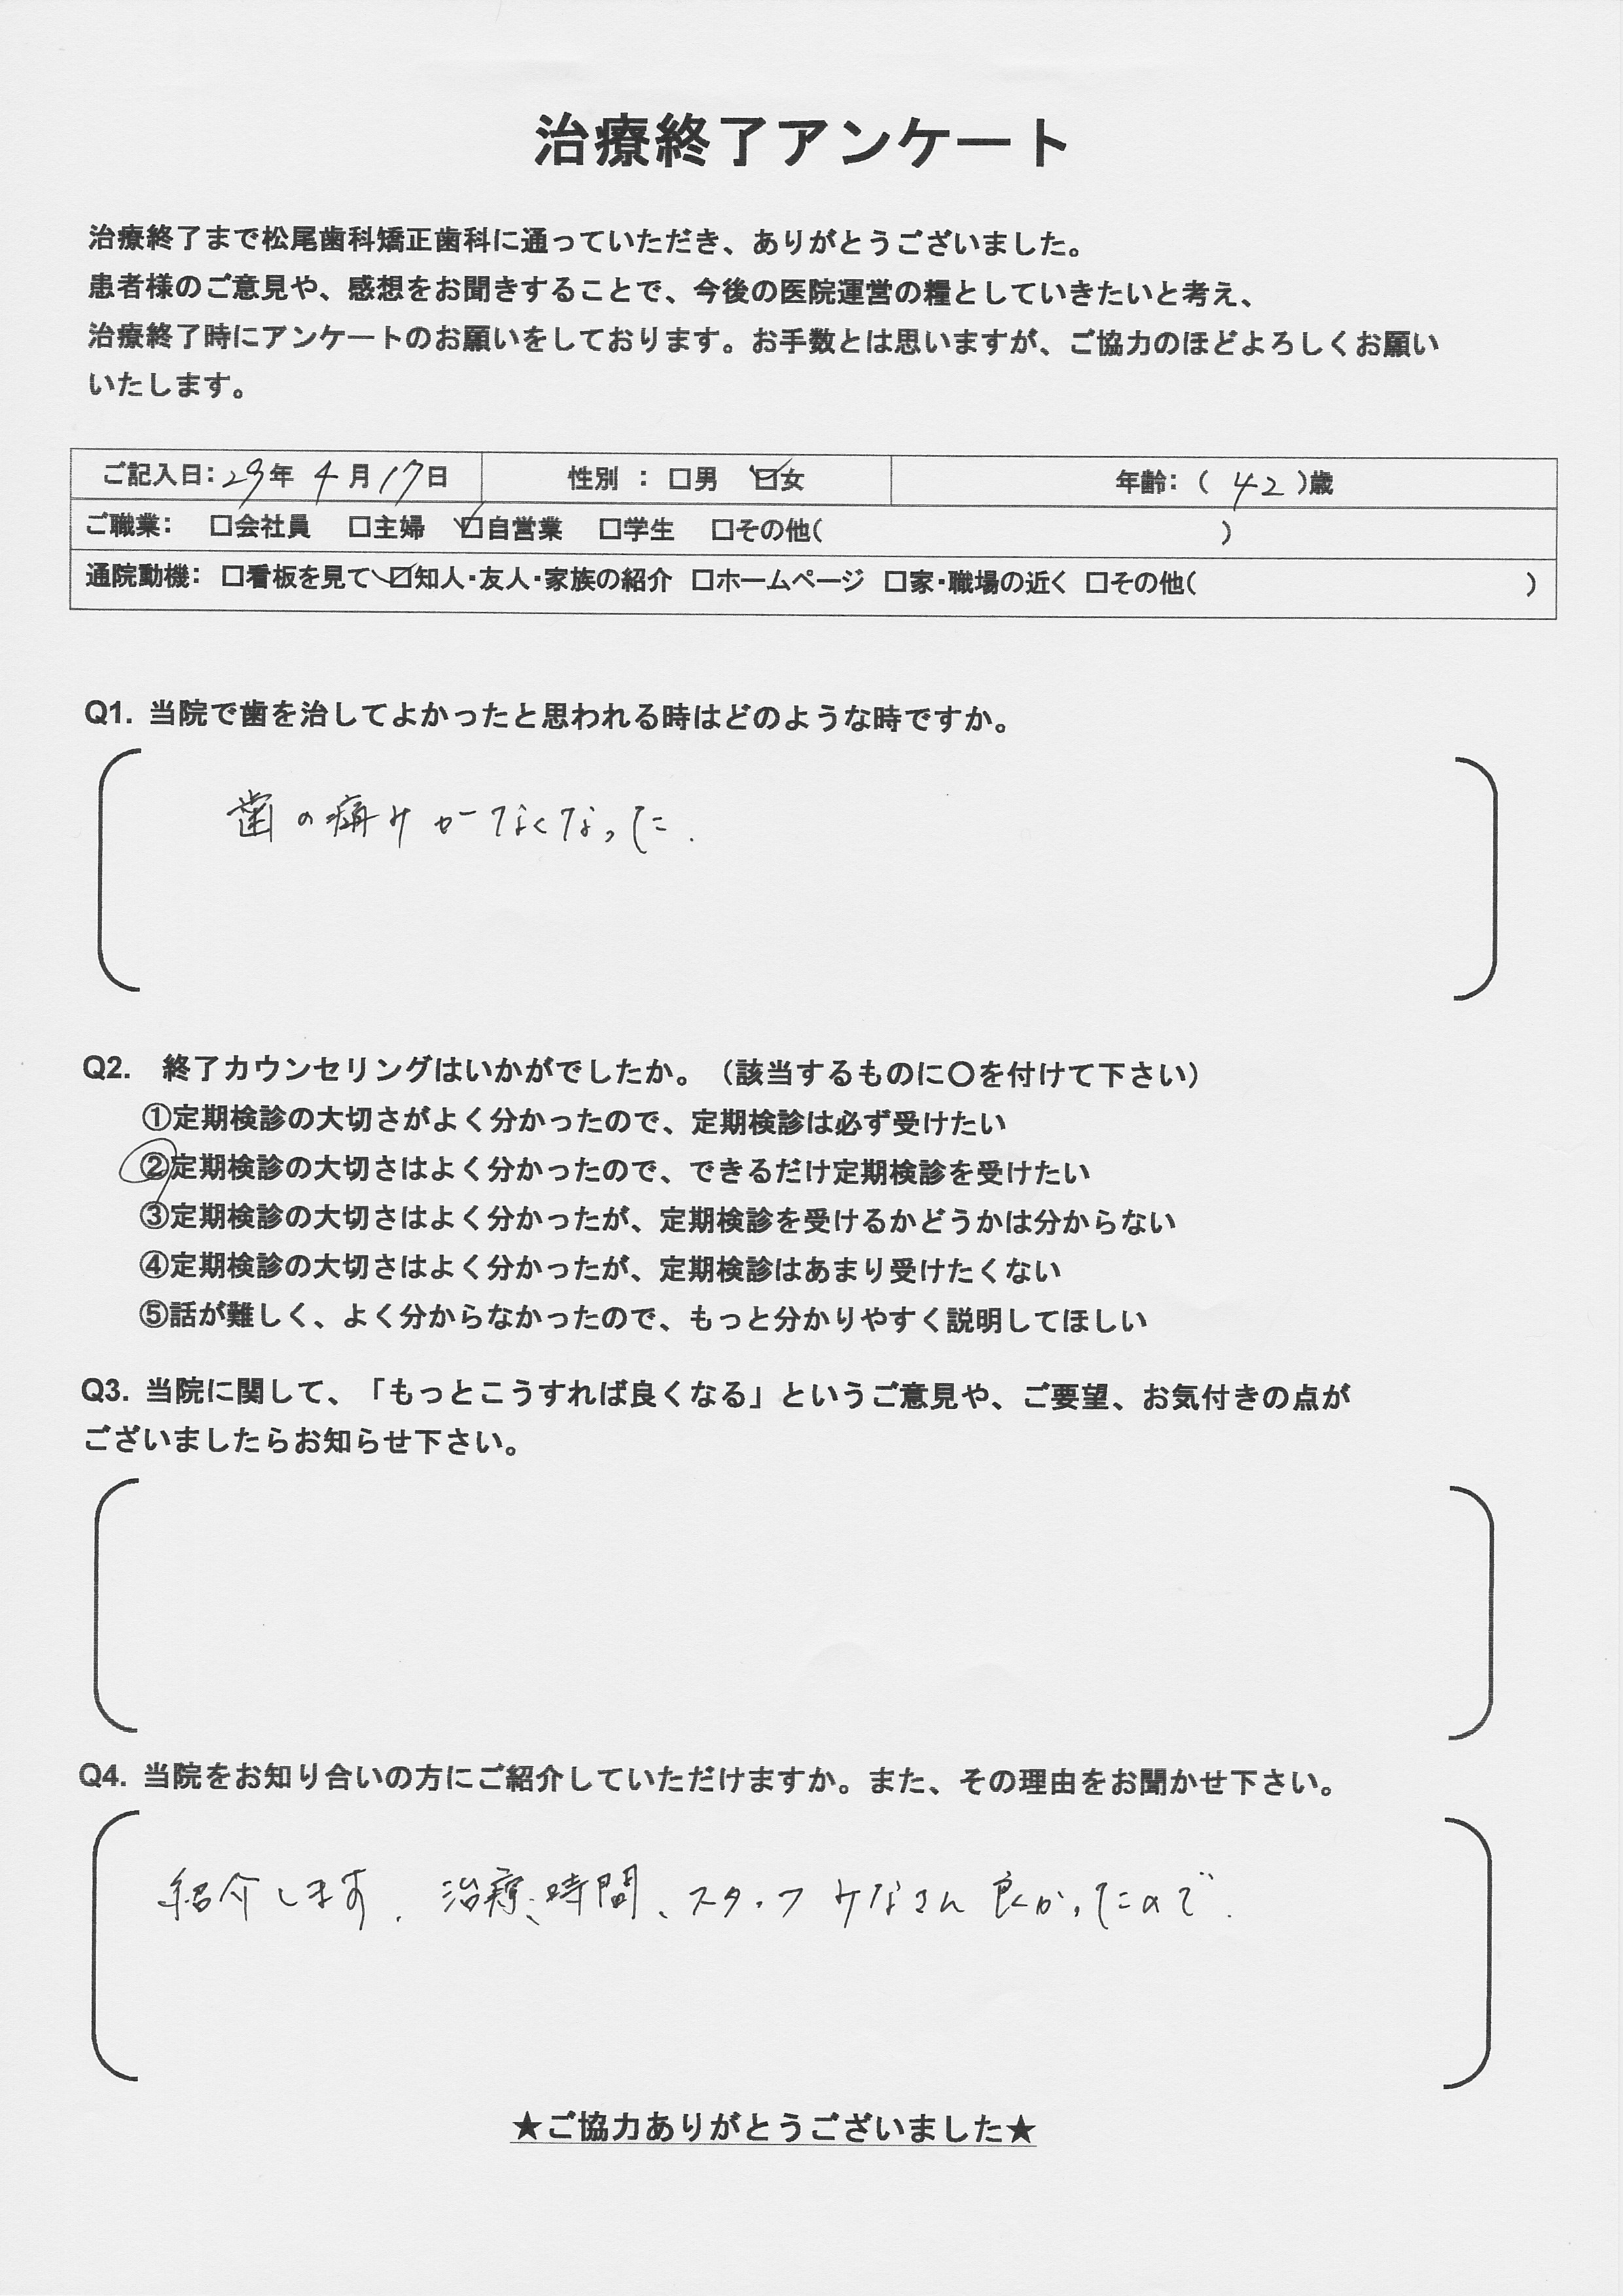 治療終了アンケート
治療終了まで松尾歯科矯正歯科に通っていただき、ありがとうございました。
患者様のご意見や、感想をお聞きすることで、今後の医院運営の糧としていきたいと考え、
治療終了時にアンケートのお願いをしております。お手数とは思いますが、ご協力のほどよろしくお願い
いたします。
ご記入日：29年 4月17日 性別 ： □男 ☑女 年齢：（ 42 ）歳
ご職業： □会社員 □主婦 ☑自営業 □学生 □その他（ ）
通院動機： □看板を見て ☑知人・友人・家族の紹介 □ホームページ □家・職場の近く □その他（ ）
Q1. 当院で歯を治してよかったと思われる時はどのような時ですか。
歯の痛みがなくなった.
Q2. 終了カウンセリングはいかがでしたか。（該当するものに〇を付けて下さい）
①定期検診の大切さがよく分かったので、定期検診は必ず受けたい
②定期検診の大切さはよく分かったので、できるだけ定期検診を受けたい
③定期検診の大切さはよく分かったが、定期検診を受けるかどうかは分からない
④定期検診の大切さはよく分かったが、定期検診はあまり受けたくない
⑤話が難しく、よく分からなかったので、もっと分かりやすく説明してほしい
Q3. 当院に関して、「もっとこうすれば良くなる」というご意見や、ご要望、お気付きの点が
ございましたらお知らせ下さい。
Q4. 当院をお知り合いの方にご紹介していただけますか。また、その理由をお聞かせ下さい。
紹介します. 治療、時間、スタッフみなさん良かったので.
★ご協力ありがとうございました★